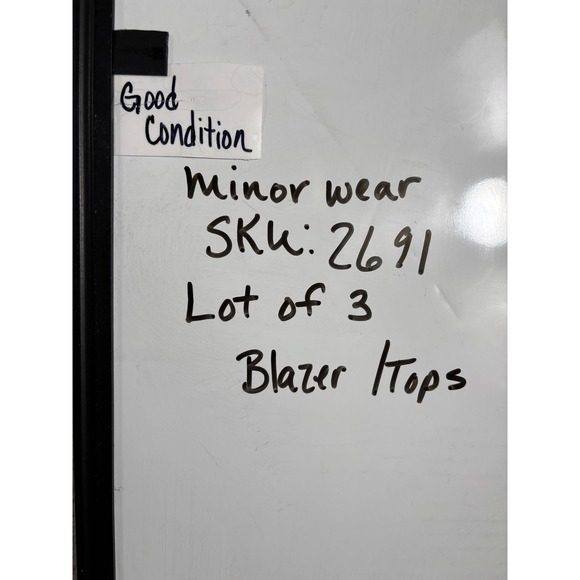 Good
Condition
minor wear
SKU: 2691
Lot of 3
Blazer /Tops